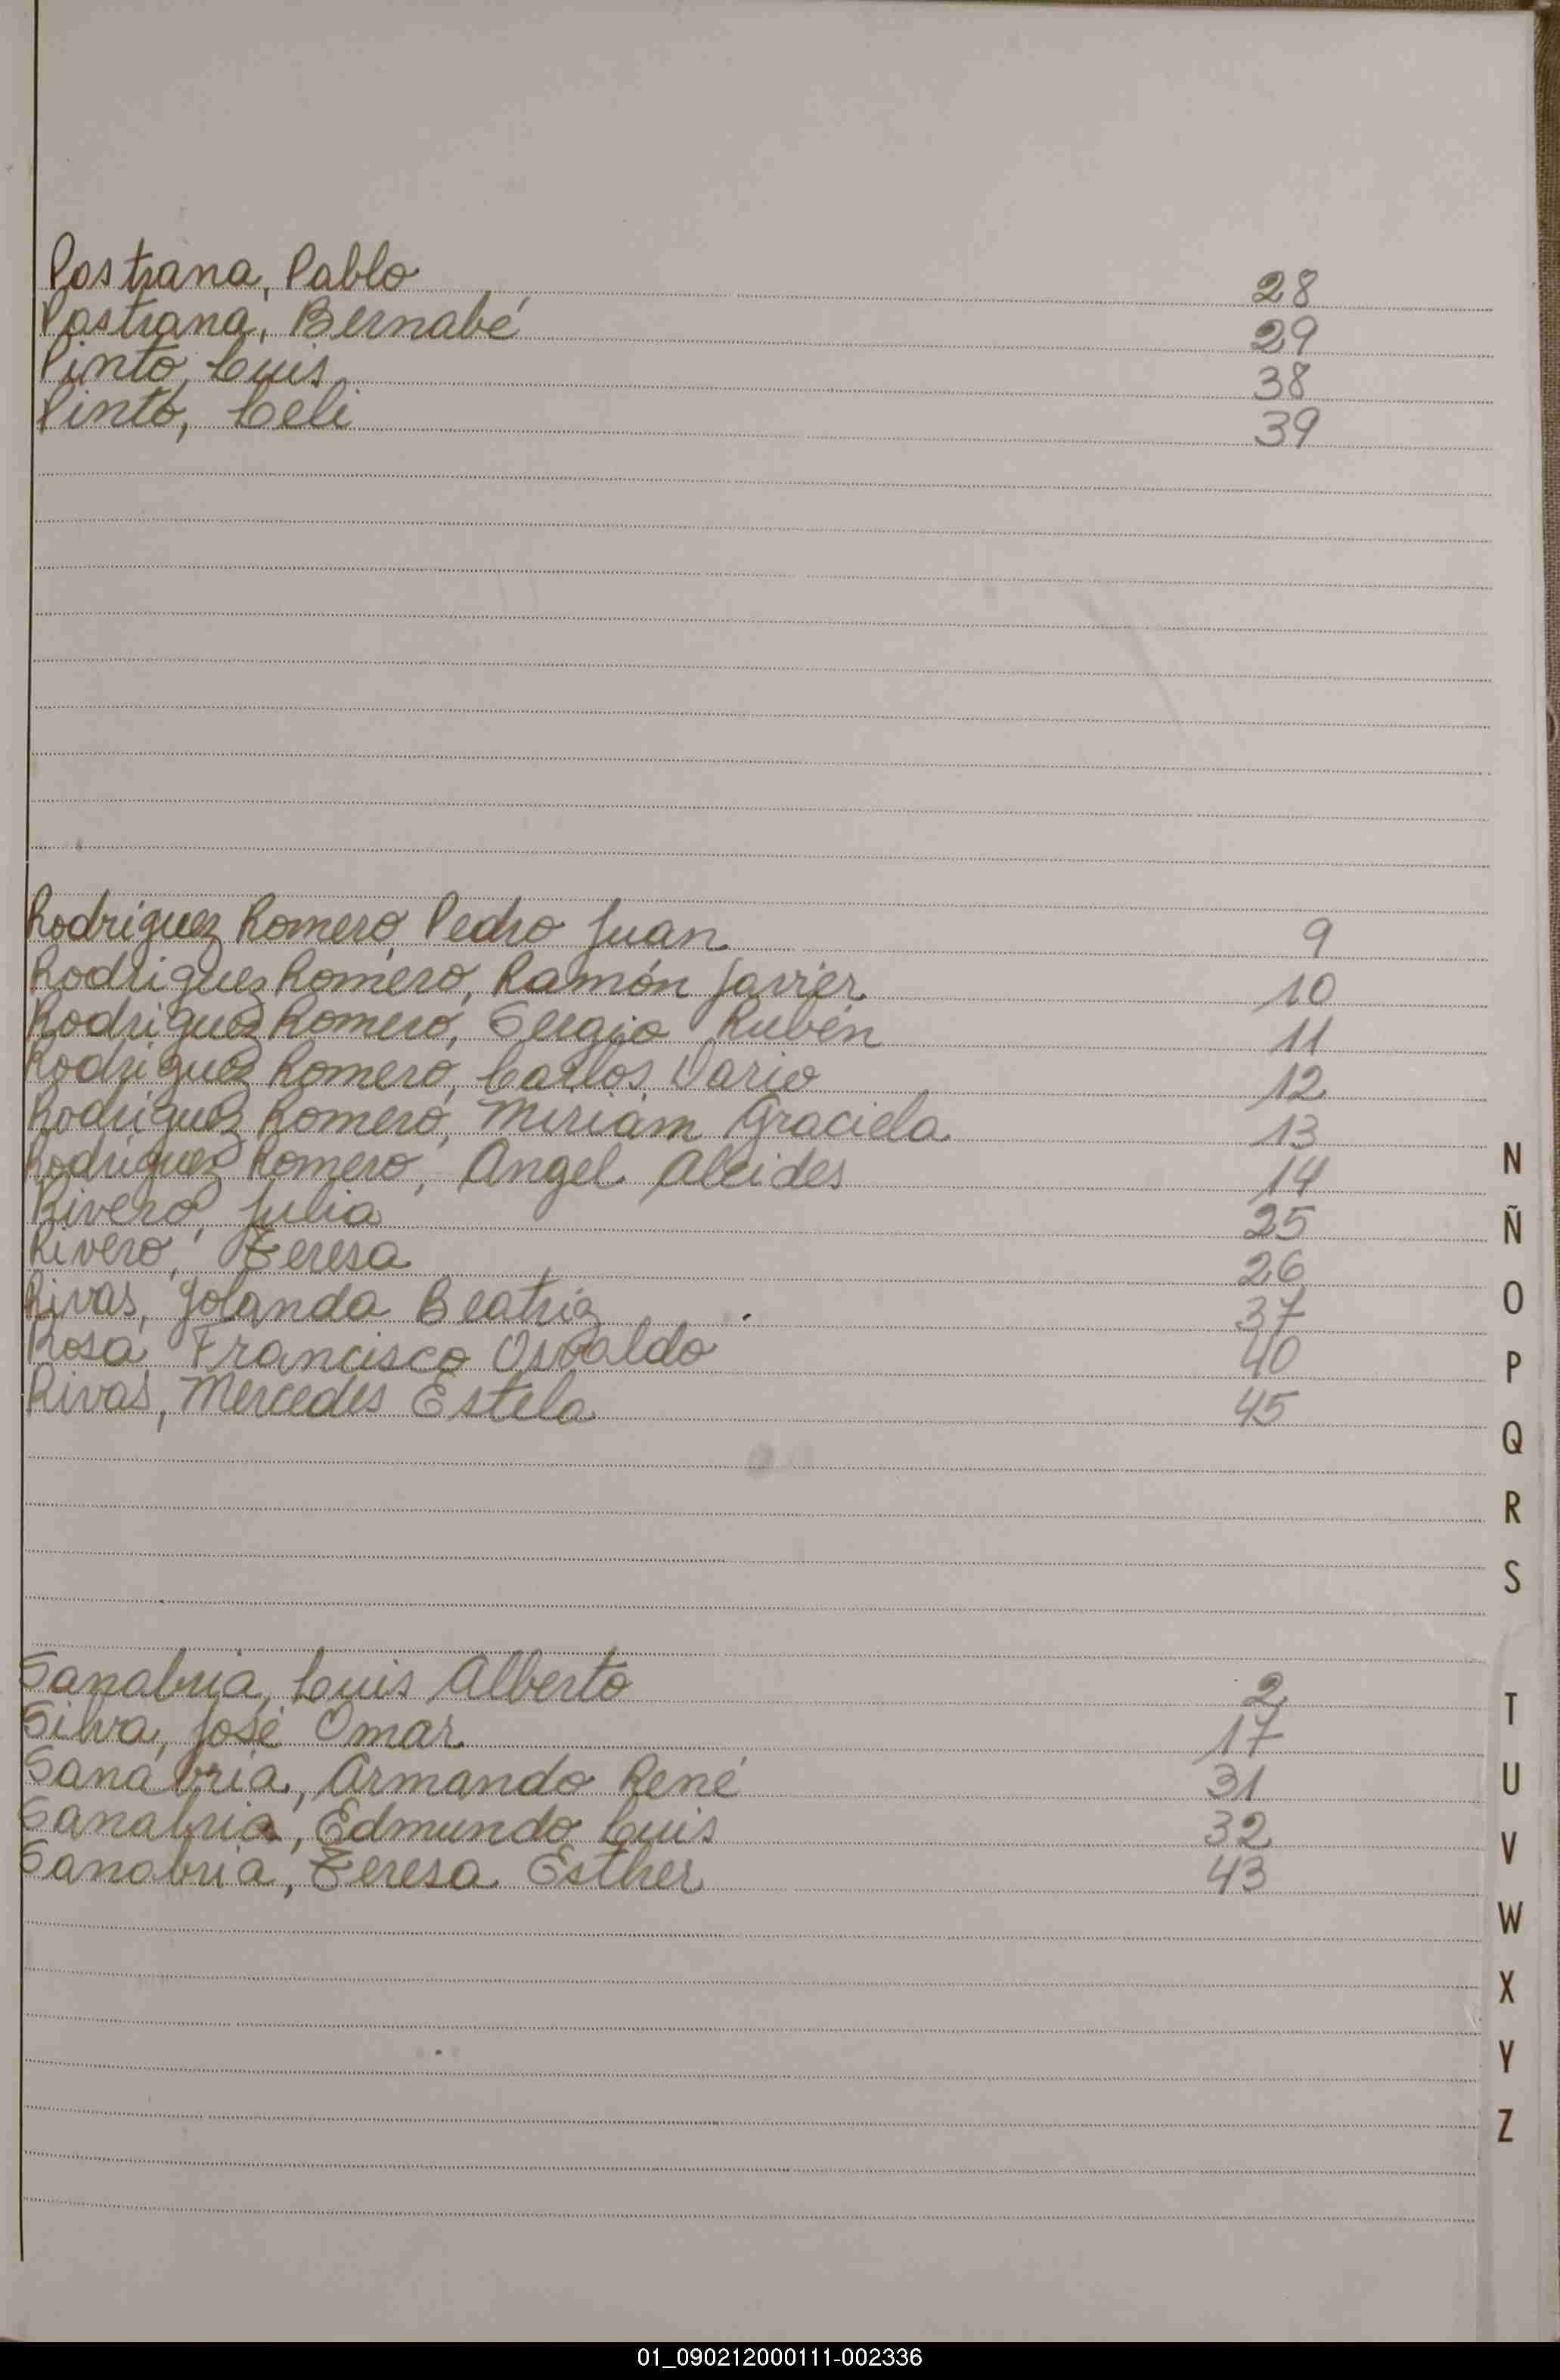 Pastrana, Pablo 28
Pastrana, Bernabé 29
Pinto, Luis 38
Pinto, Celi 39
Rodriguez Romero, Pedro Juan 9
Rodriguez Romero, Ramón Javier 10
Rodriguez Romero, Sergio Rubén 11
Rodriguez Romero, Carlos Dario 12
Rodriguez Romero, Miriam Graciela 13
Rodriguez Romero, Angel Alcides 14
Rivero, Julia 25
Rivero, Teresa 26
Rivas, Yolanda Beatriz 37
Rosa, Francisco Osvaldo 40
Rivas, Mercedes Estela 45
Sanabria, Luis Alberto 2
Silva, José Omar 17
Sanabria, Armando René 31
Sanabria, Edmundo Luis 32
Sanabria, Teresa Esther 43
N
Ñ
O
P
Q
R
S
T
U
V
W
X
Y
Z
01_090212000111-002336